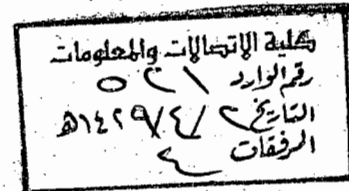 كلية الاتصالات والمعلومات
رقم الوارد ٥٢١
التاريخ ٢/٤/١٤٢٩هـ
المرفقات ٤